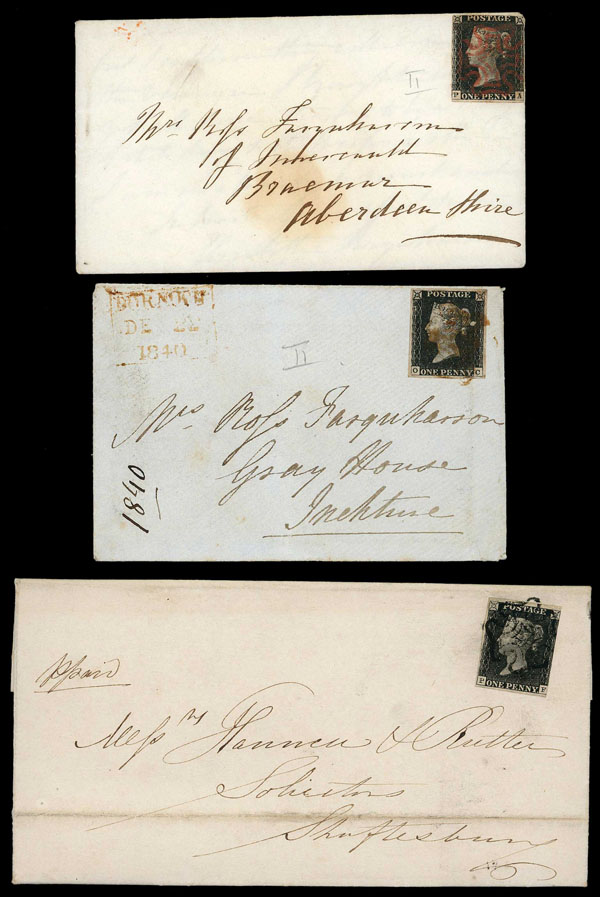 POSTAGE
P A
ONE PENNY
II
Mrs Ross Farquharson
of Invercauld
Braemar
Aberdeen Shire
DORNOCH
DE 22
1840
POSTAGE
O C
ONE PENNY
II
Mrs Ross Farquharson
Gray House
Inchture
1840
POSTAGE
ONE PENNY
ppaid
Messrs Hannen & Rutter
Solicitors
Shaftesbury